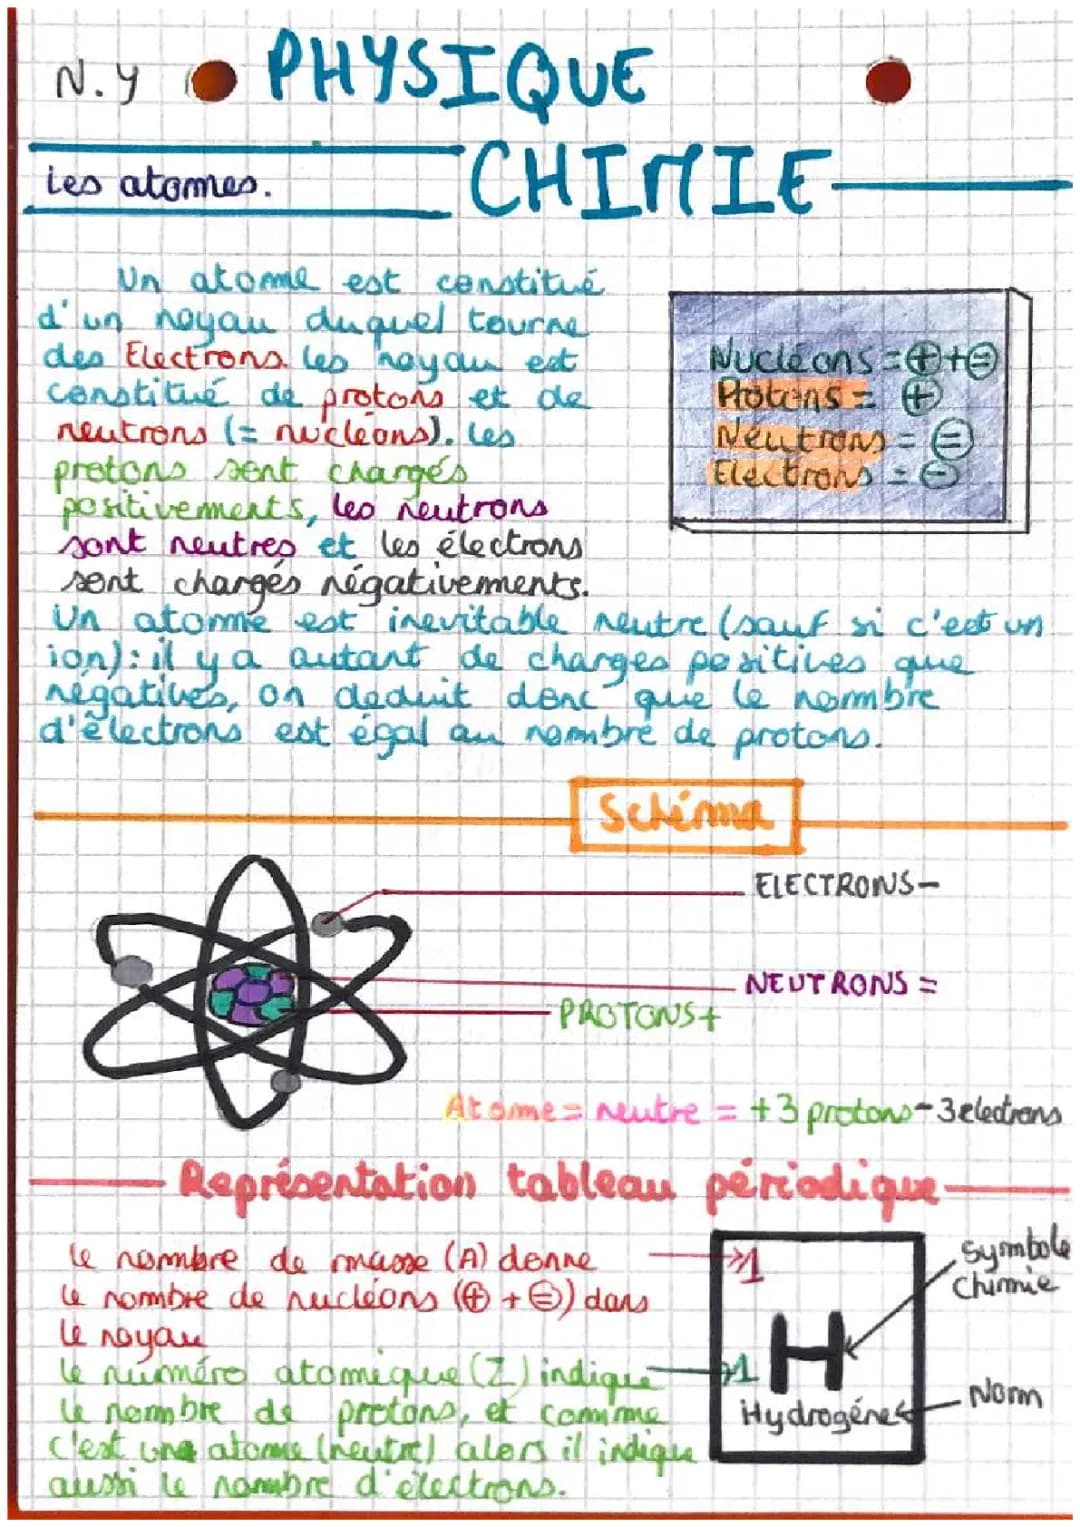 N.Y PHYSIQUE
CHIMIE
Les atomes.
Un atome est constitué
d'un noyau duquel tourne
des Electrons. Les noyau est
constitué de protons et de
neutrons (= nucléons). Les
protons sont chargés
positivements, les neutrons
sont neutres et les électrons
sont chargés négativements.
Un atome est inevitable neutre (sauf si c'est un
ion): il y a autant de charges positives que
négatives, on deduit donc que le nombre
d'électrons est égal au nombre de protons.
Nucléons = ⊕+⊜
Protons = ⊕
Neutrons = ⊜
Electrons = ⊖
Schéma
ELECTRONS-
NEUTRONS =
PROTONS+
Atome = neutre = +3 protons - 3 electrons
Représentation tableau périodique
Le nombre de masse (A) donne
le nombre de nucléons (⊕ + ⊜) dans
le noyau
Le numéro atomique (Z) indique
le nombre de protons, et comme
c'est une atome (neutre) alors il indique
aussi le nombre d'électrons.
1
H
1
Hydrogéne
Symbole
chimie
Nom